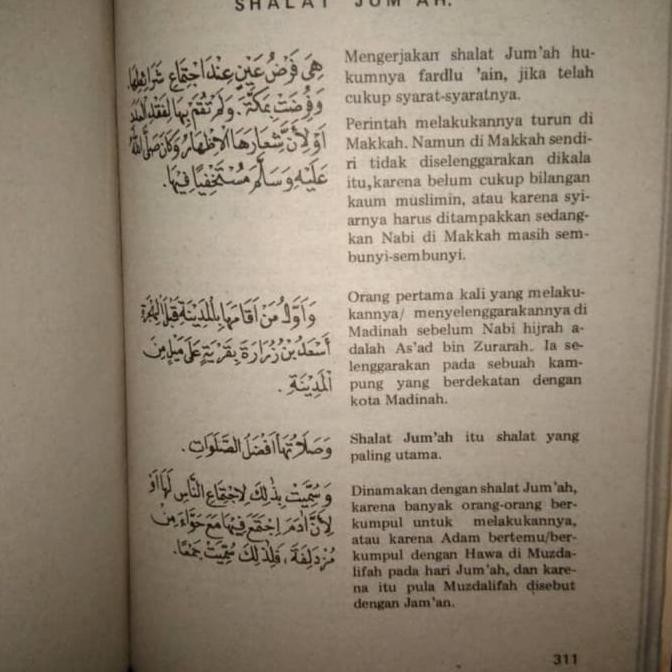 SHALAT JUM'AH.
هِيَ فَرْضُ عَيْنٍ عِنْدَ اجْتِمَاعِ شَرَائِطِهَا.
وَفُرِضَتْ بِمَكَّةَ. وَلَمْ تُقَمْ بِهَا لِفَقْدِ الْعَدَدِ
أَوْ لِأَنَّ شِعَارَهَا الْإِظْهَارُ وَكَانَ صَلَّى اللهُ
عَلَيْهِ وَسَلَّمَ مُسْتَخْفِيًا فِيهَا.
Mengerjakan shalat Jum'ah hu-
kumnya fardlu 'ain, jika telah
cukup syarat-syaratnya.
Perintah melakukannya turun di
Makkah. Namun di Makkah sendi-
ri tidak diselenggarakan dikala
itu,karena belum cukup bilangan
kaum muslimin, atau karena syi-
arnya harus ditampakkan sedang-
kan Nabi di Makkah masih sem-
bunyi-sembunyi.
وَأَوَّلُ مَنْ أَقَامَهَا بِالْمَدِينَةِ قَبْلَ الْهِجْرَةِ
أَسْعَدُ بْنُ زُرَارَةَ بِقَرْيَةٍ عَلَى مِيلٍ مِنَ
الْمَدِينَةِ.
Orang pertama kali yang melaku-
kannya/ menyelenggarakannya di
Madinah sebelum Nabi hijrah a-
dalah As'ad bin Zurarah. Ia se-
lenggarakan pada sebuah kam-
pung yang berdekatan dengan
kota Madinah.
وَصَلَاتُهَا أَفْضَلُ الصَّلَوَاتِ.
Shalat Jum'ah itu shalat yang
paling utama.
وَسُمِّيَتْ بِذٰلِكَ لِاجْتِمَاعِ النَّاسِ لَهَا أَوْ
لِأَنَّ آدَمَ اجْتَمَعَ فِيهَا مَعَ حَوَّاءَ مِنْ
مُزْدَلِفَةَ، فَلِذٰلِكَ سُمِّيَتْ جَمْعًا.
Dinamakan dengan shalat Jum'ah,
karena banyak orang-orang ber-
kumpul untuk melakukannya,
atau karena Adam bertemu/ber-
kumpul dengan Hawa di Muzda-
lifah pada hari Jum'ah, dan kare-
na itu pula Muzdalifah disebut
dengan Jam'an.
311